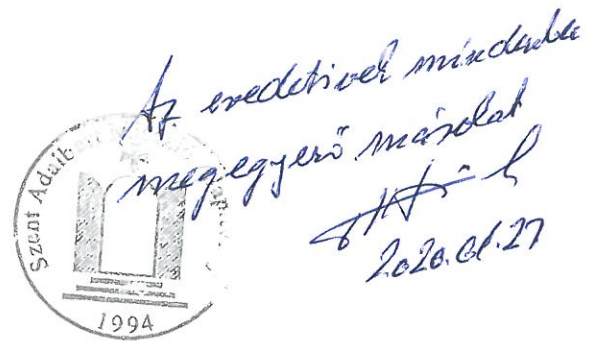 Az eredetivel mindenbe
megegyező másolat
2020.01.27
Szent Adalb
1994